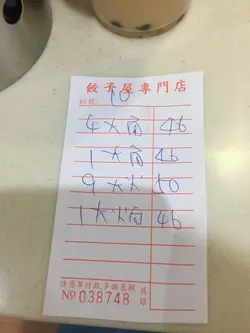 餃子屋專門店
檯號 10
4大肉 46
1大肉 46
9大 50
1大 46
請憑單付款,多謝惠顧 共銀
No 038748